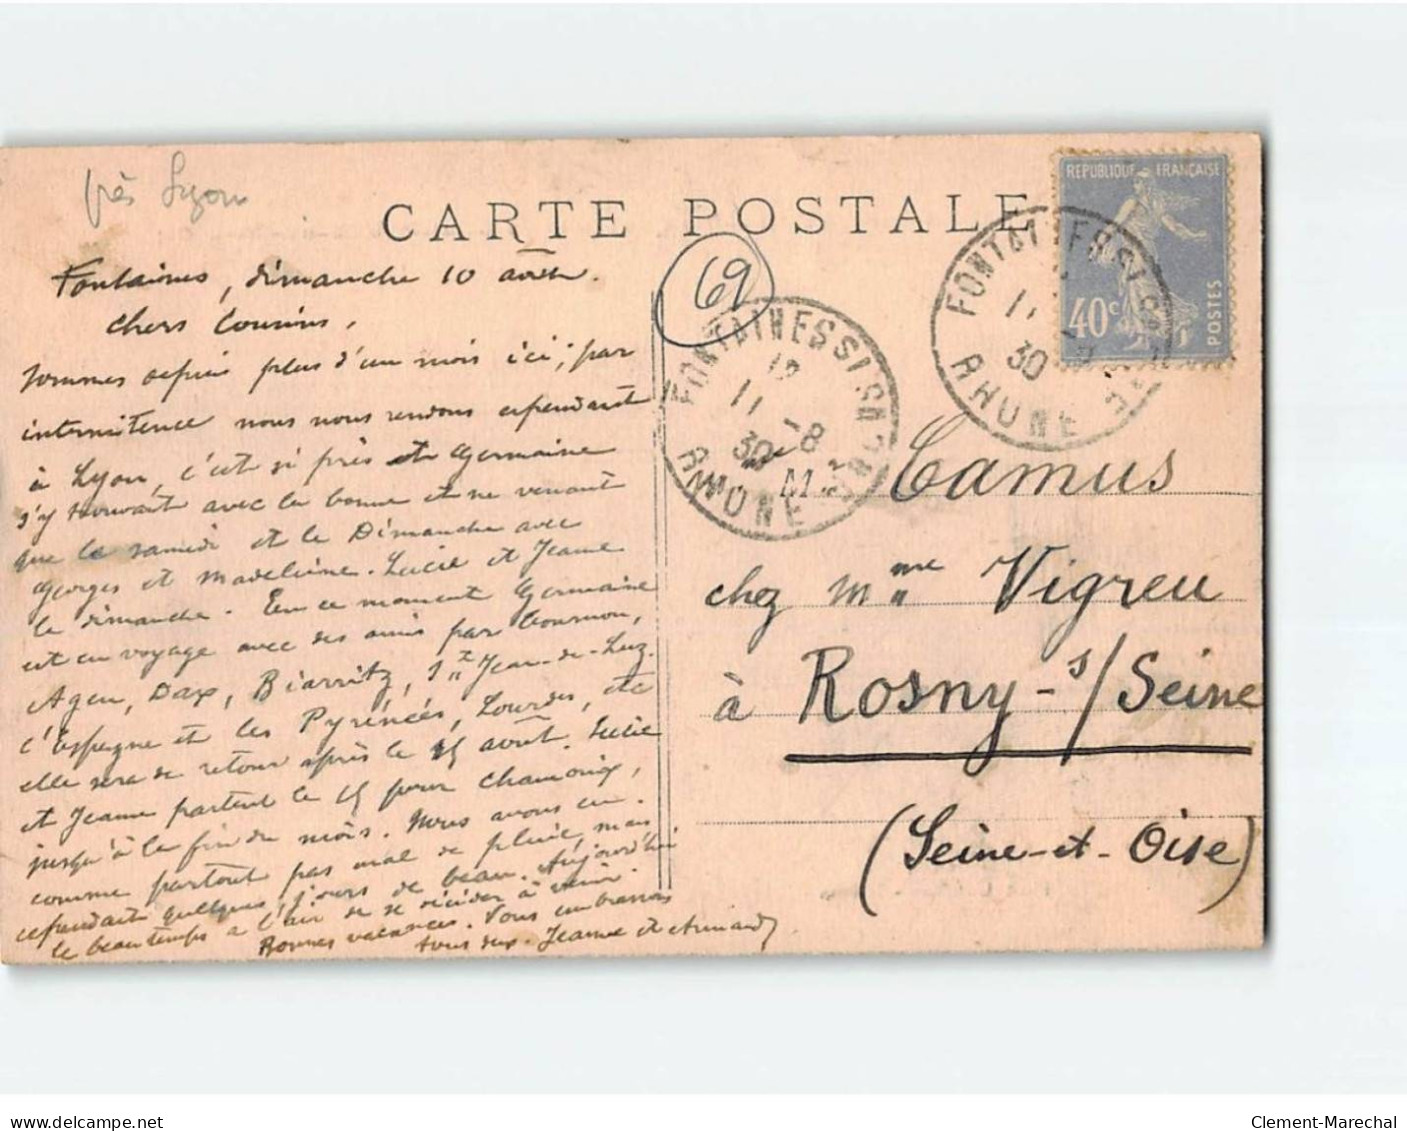 près Lyon
CARTE POSTALE
69
RÉPUBLIQUE FRANÇAISE
40c
POSTES
FONTAINES S/ SAONE
11
30
RHONE
FONTAINES S/ SAONE
12
11 -8
30
RHONE
Fontaines, dimanche 10 août.
chers Cousins,
sommes depuis plus d'un mois ici; par
intermitence nous nous rendons cependant
à Lyon, c'est si près et Germaine
s'y trouvait avec la bonne et ne venant
que le samedi et le Dimanche avec
Georges et Madeleine. Lucie et Jeanne
le dimanche. En ce moment Germaine
est en voyage avec des amis par Tournon,
Agen, Dax, Biarritz, St Jean-de-Luz.
l'Espagne et les Pyrénées, Lourdes, etc
elle sera de retour après le 15 août. Lucie
et Jeanne partent le 15 pour Chamonix,
jusqu'à la fin du mois. Nous avons eu
comme partout pas mal de pluie, mais
cependant quelques jours de beau. Aujourd'hui
le beau temps a l'air de se décider à venir.
Bonnes vacances. Vous embrassons
tous deux. Jeanne et Armand
M. Camus
chez Mme Vigreu
à Rosny-s/Seine
(Seine-et-Oise)
delcampe.net
Clement-Marechal